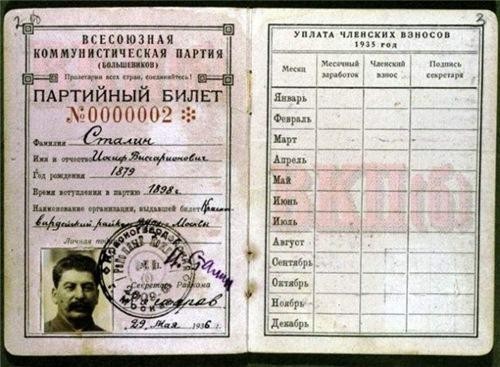 ВСЕСОЮЗНАЯ
КОММУНИСТИЧЕСКАЯ ПАРТИЯ
(БОЛЬШЕВИКОВ)
Пролетарии всех стран, соединяйтесь!
ПАРТИЙНЫЙ БИЛЕТ
№0000002
Фамилия Сталин
Имя и отчество Иосиф Виссарионович
Год рождения 1879
Время вступления в партию 1898г.
Наименование организации, выдавшей билет Красно
гвардейский Москвы
Личная
Секретарь Райкома
29 Мая 1936 г.
3
УПЛАТА ЧЛЕНСКИХ ВЗНОСОВ
1935 год
Месяц Месячный заработок Членский взнос Подпись секретаря
Январь
Февраль
Март
Апрель
Май
Июнь
Июль
Август
Сентябрь
Октябрь
Ноябрь
Декабрь
ВКП(б)